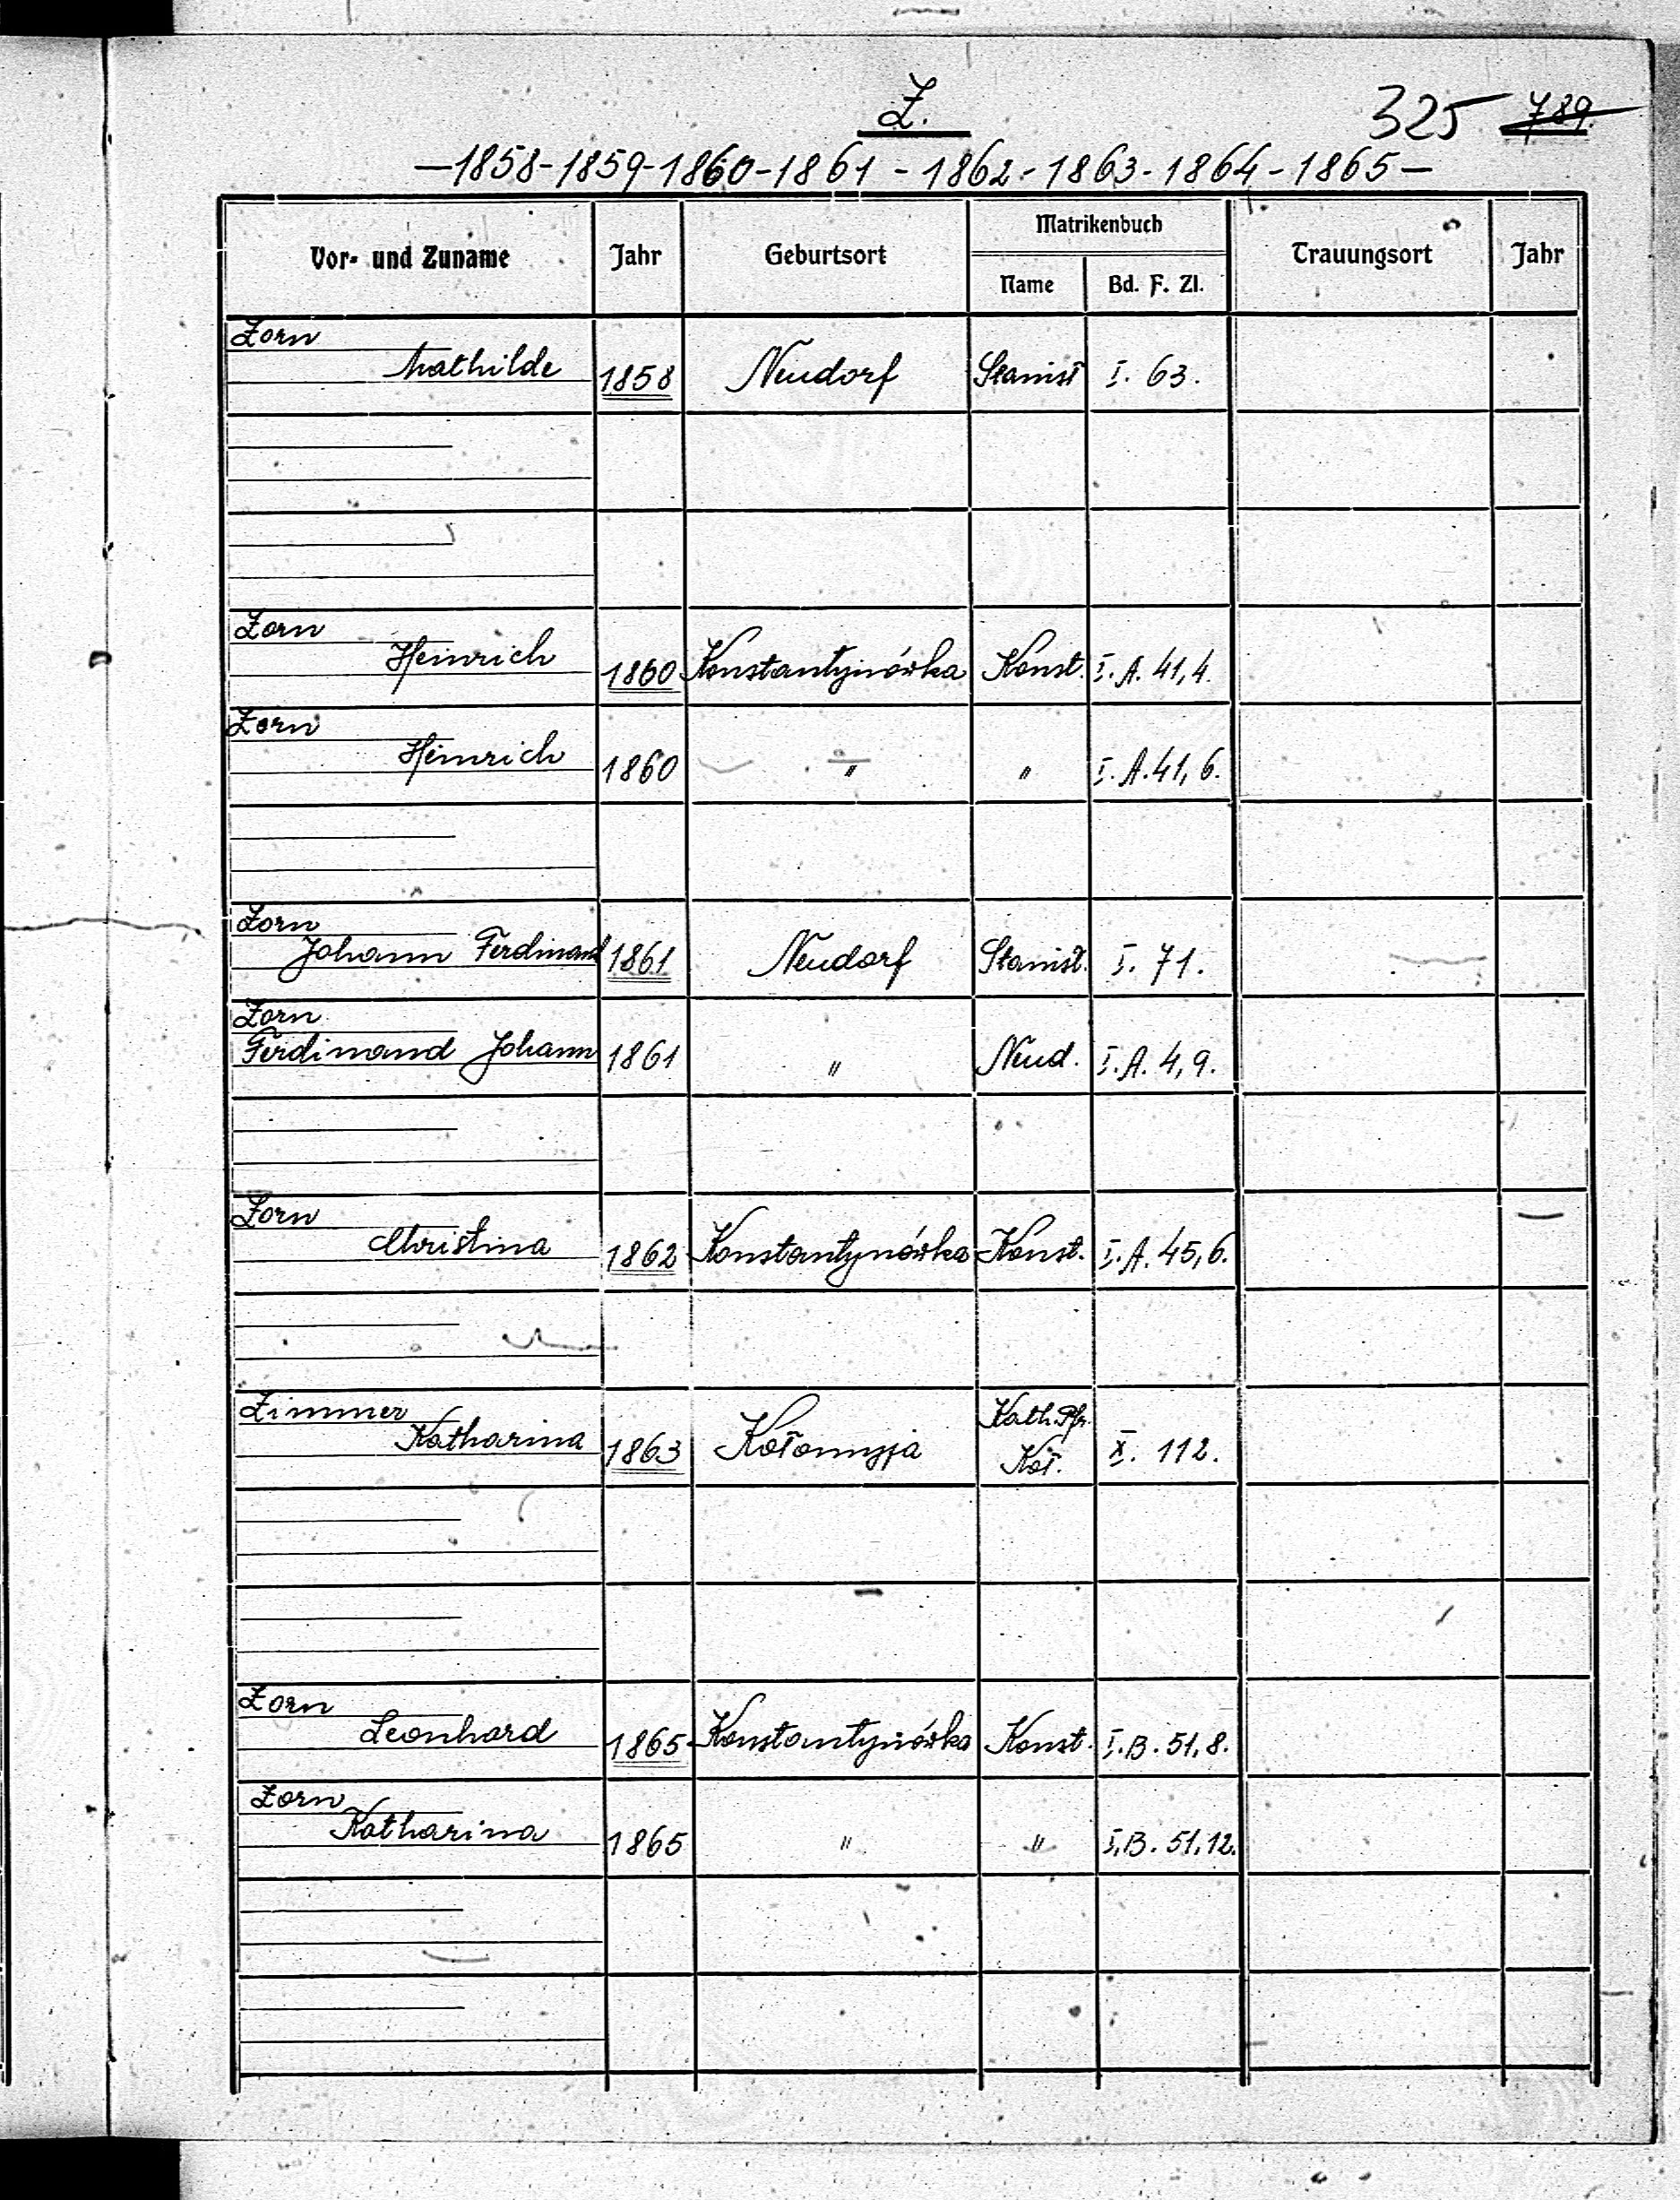 Z.
325 789.
—1858-1859-1860-1861-1862-1863-1864-1865—
Vor- und Zuname Jahr Geburtsort Matrikenbuch Trauungsort Jahr
Name Bd. F. Zl.
Zorn
Mathilde 1858 Neudorf Stanisł I. 63.
Zorn
Heinrich 1860 Konstantynówka Konst. I.A. 41,4.
Zorn
Heinrich 1860 " " I.A. 41,6.
Zorn
Johann Ferdinand 1861 Neudorf Stanisł. I. 71.
Zorn
Ferdinand Johann 1861 " Neud. I.A. 4,9.
Zorn
Christina 1862 Konstantynówka Konst. I.A. 45,6.
Zimmer Kath. Pfr.
Katharina 1863 Kołomyja Koł. X. 112.
Zorn
Leonhard 1865 Konstantynówka Konst. I.B. 51,8.
Zorn
Katharina 1865 " " I.B. 51,12.